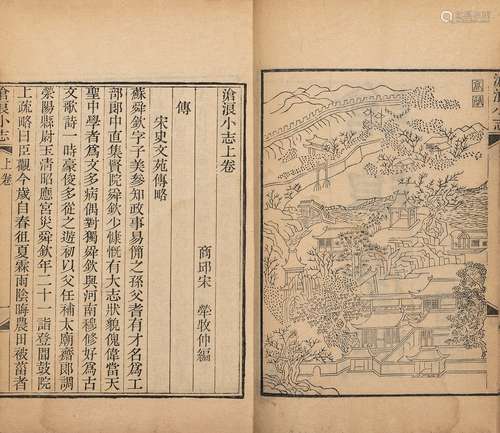 滄浪小志上卷
商邱宋 犖牧仲編
傳
宋史文苑傳略
蘇舜欽字子美參知政事易簡之孫父耆有才名爲工
部郎中直集賢院舜欽少慷慨有大志狀貌傀偉當天
聖中學者爲文多病偶對獨舜欽與河南穆修好爲古
文歌詩一時豪俊多從之遊初以父任補太廟齋郎調
滎陽縣尉玉清昭應宮災舜欽年二十一詣登聞鼓院
上疏略曰臣觀今歲自春徂夏霖雨陰晦農田被菑者
滄浪小志
上卷